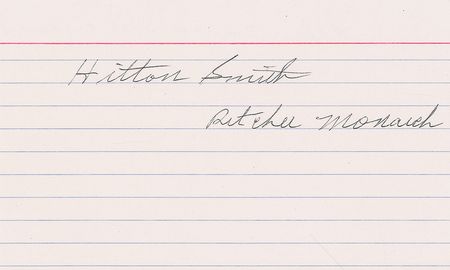 Hilton Smith
Pitcher Monarch